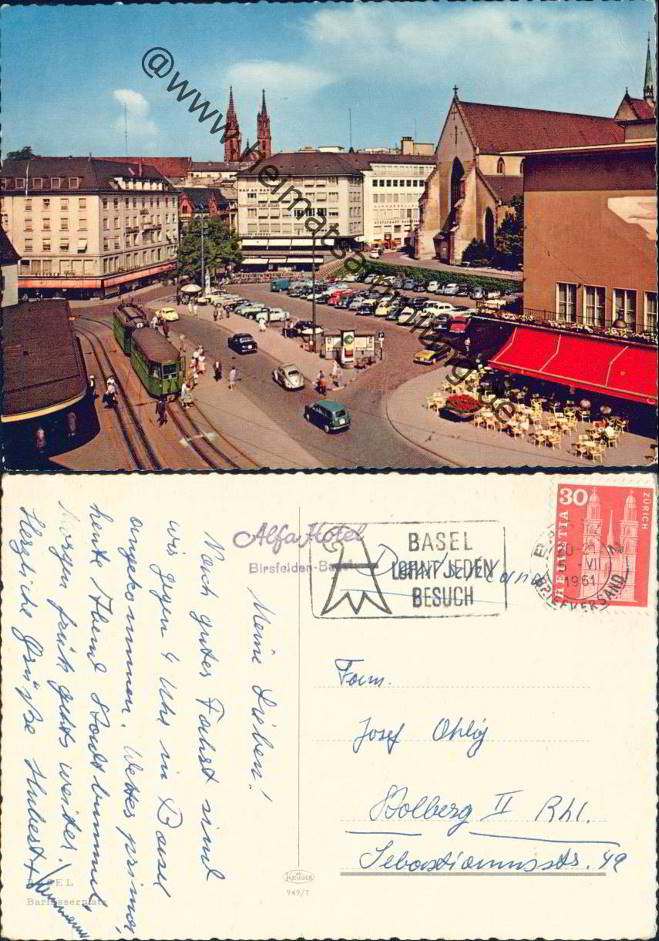 @www.heimatsammlung.de
Alfa Hotel
Birsfelden-Basel
Meine Lieben!
Nach guter Fahrt sind
wir gegen 4 Uhr in Basel
angekommen. Wetter prima,
heute Abend Stadtbummel,
Morgen früh gehts weiter
Herzliche Grüße Hubert
BASEL
LOHNT JEDEN
BESUCH
30
HELVETIA
ZÜRICH
1961
BRIEFVERSAND
Fam.
Josef Ohlig
Stolberg II Rhl.
Sebastianusstr. 49
Barfüsserplatz
949/7